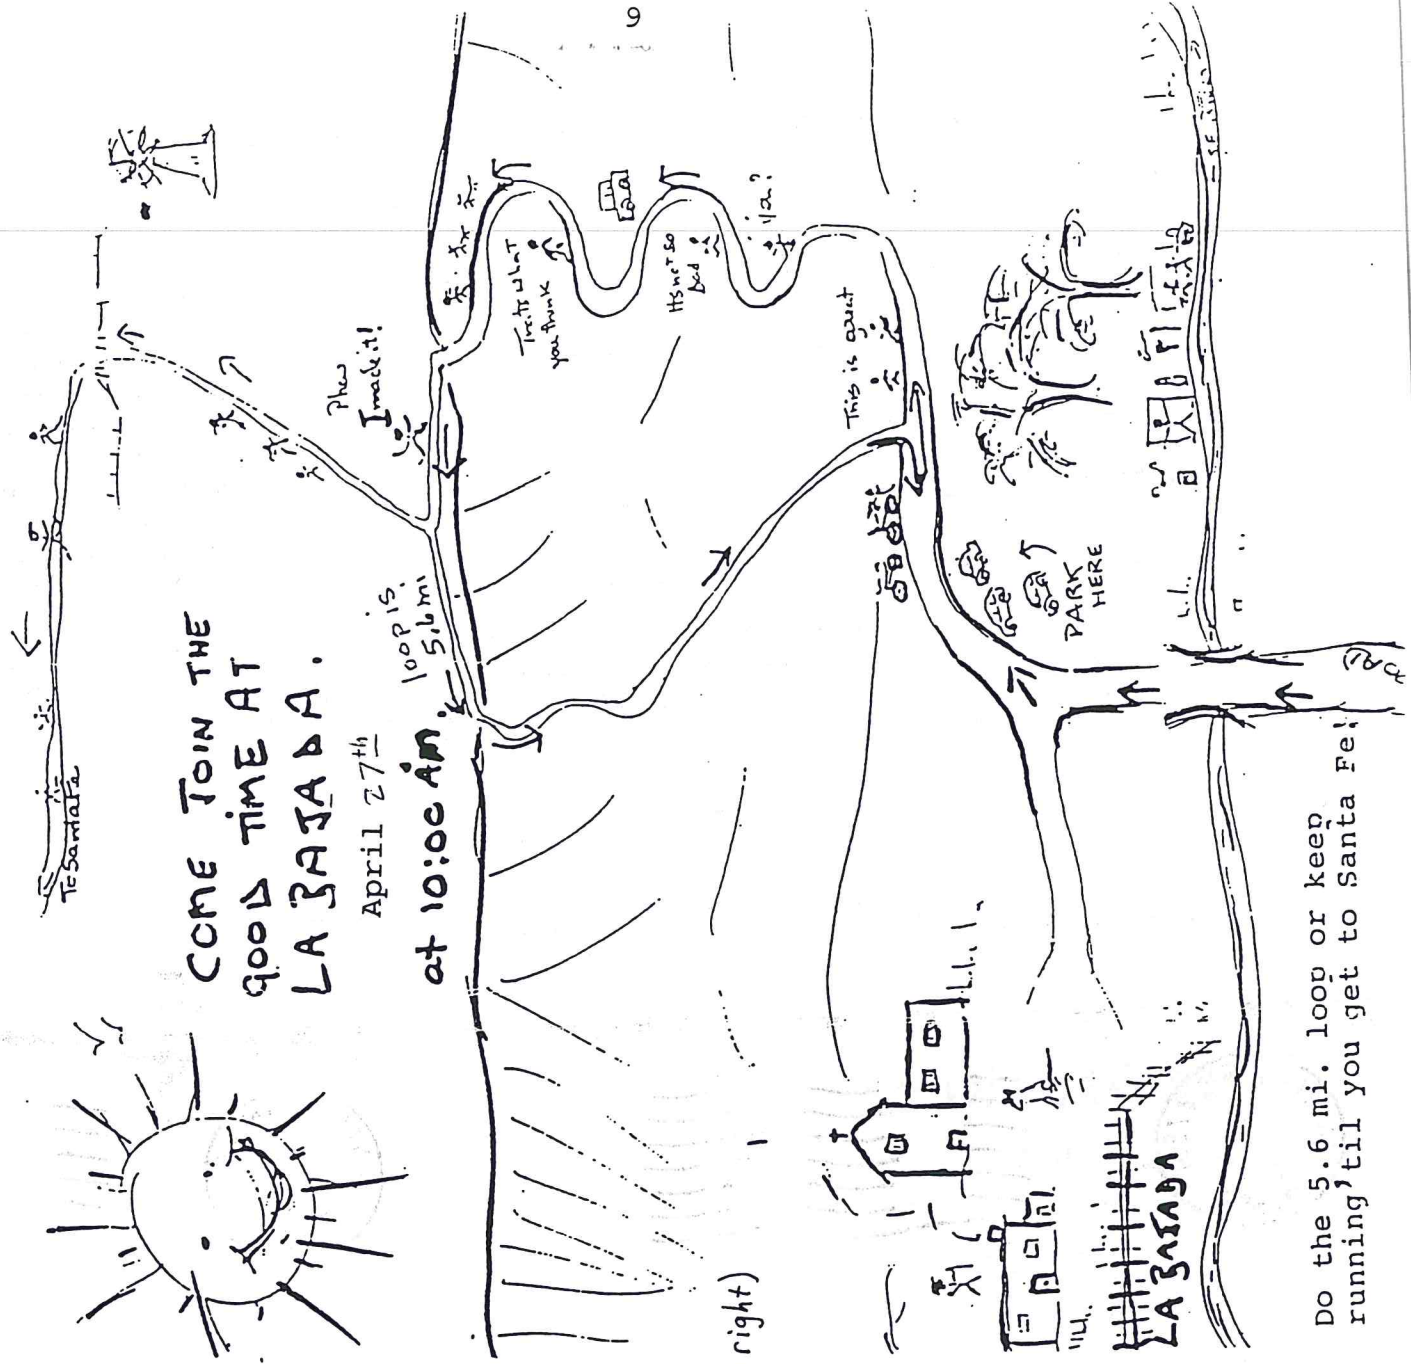 9
To Santa Fe
COME JOIN THE
GOOD TIME AT
LA BAJADA.
April 27th
at 10:00 AM.
loop is
5.6 mi
Phew
I made it!
That's what
you think
It's not so
bad
1/2?
This is great
PARK
HERE
LA BAJADA
right)
Do the 5.6 mi. loop or keep
running 'til you get to Santa Fe!